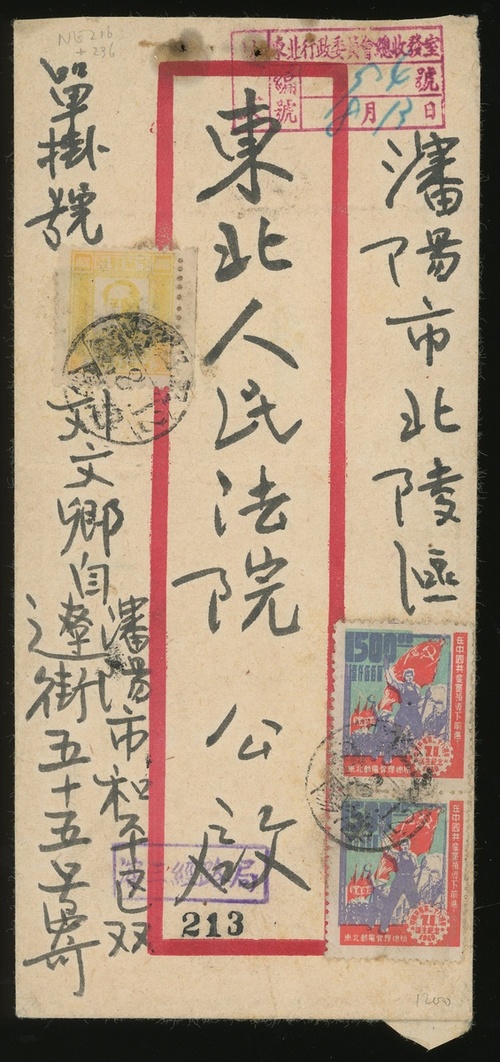 瀋陽市北陵區
東北人民法院 公啟
單掛號
瀋陽市和平區双
刘文卿自遼街五十五号寄
東北行政委員會總收發室
編號
54
號
8月13日
213
1500
在中國共產黨領導下前進!
7.1
1949
東北郵電管理總局
在中國共產黨領導下前進!
7.1
1949
東北郵電管理總局
NE 216
+236
1200